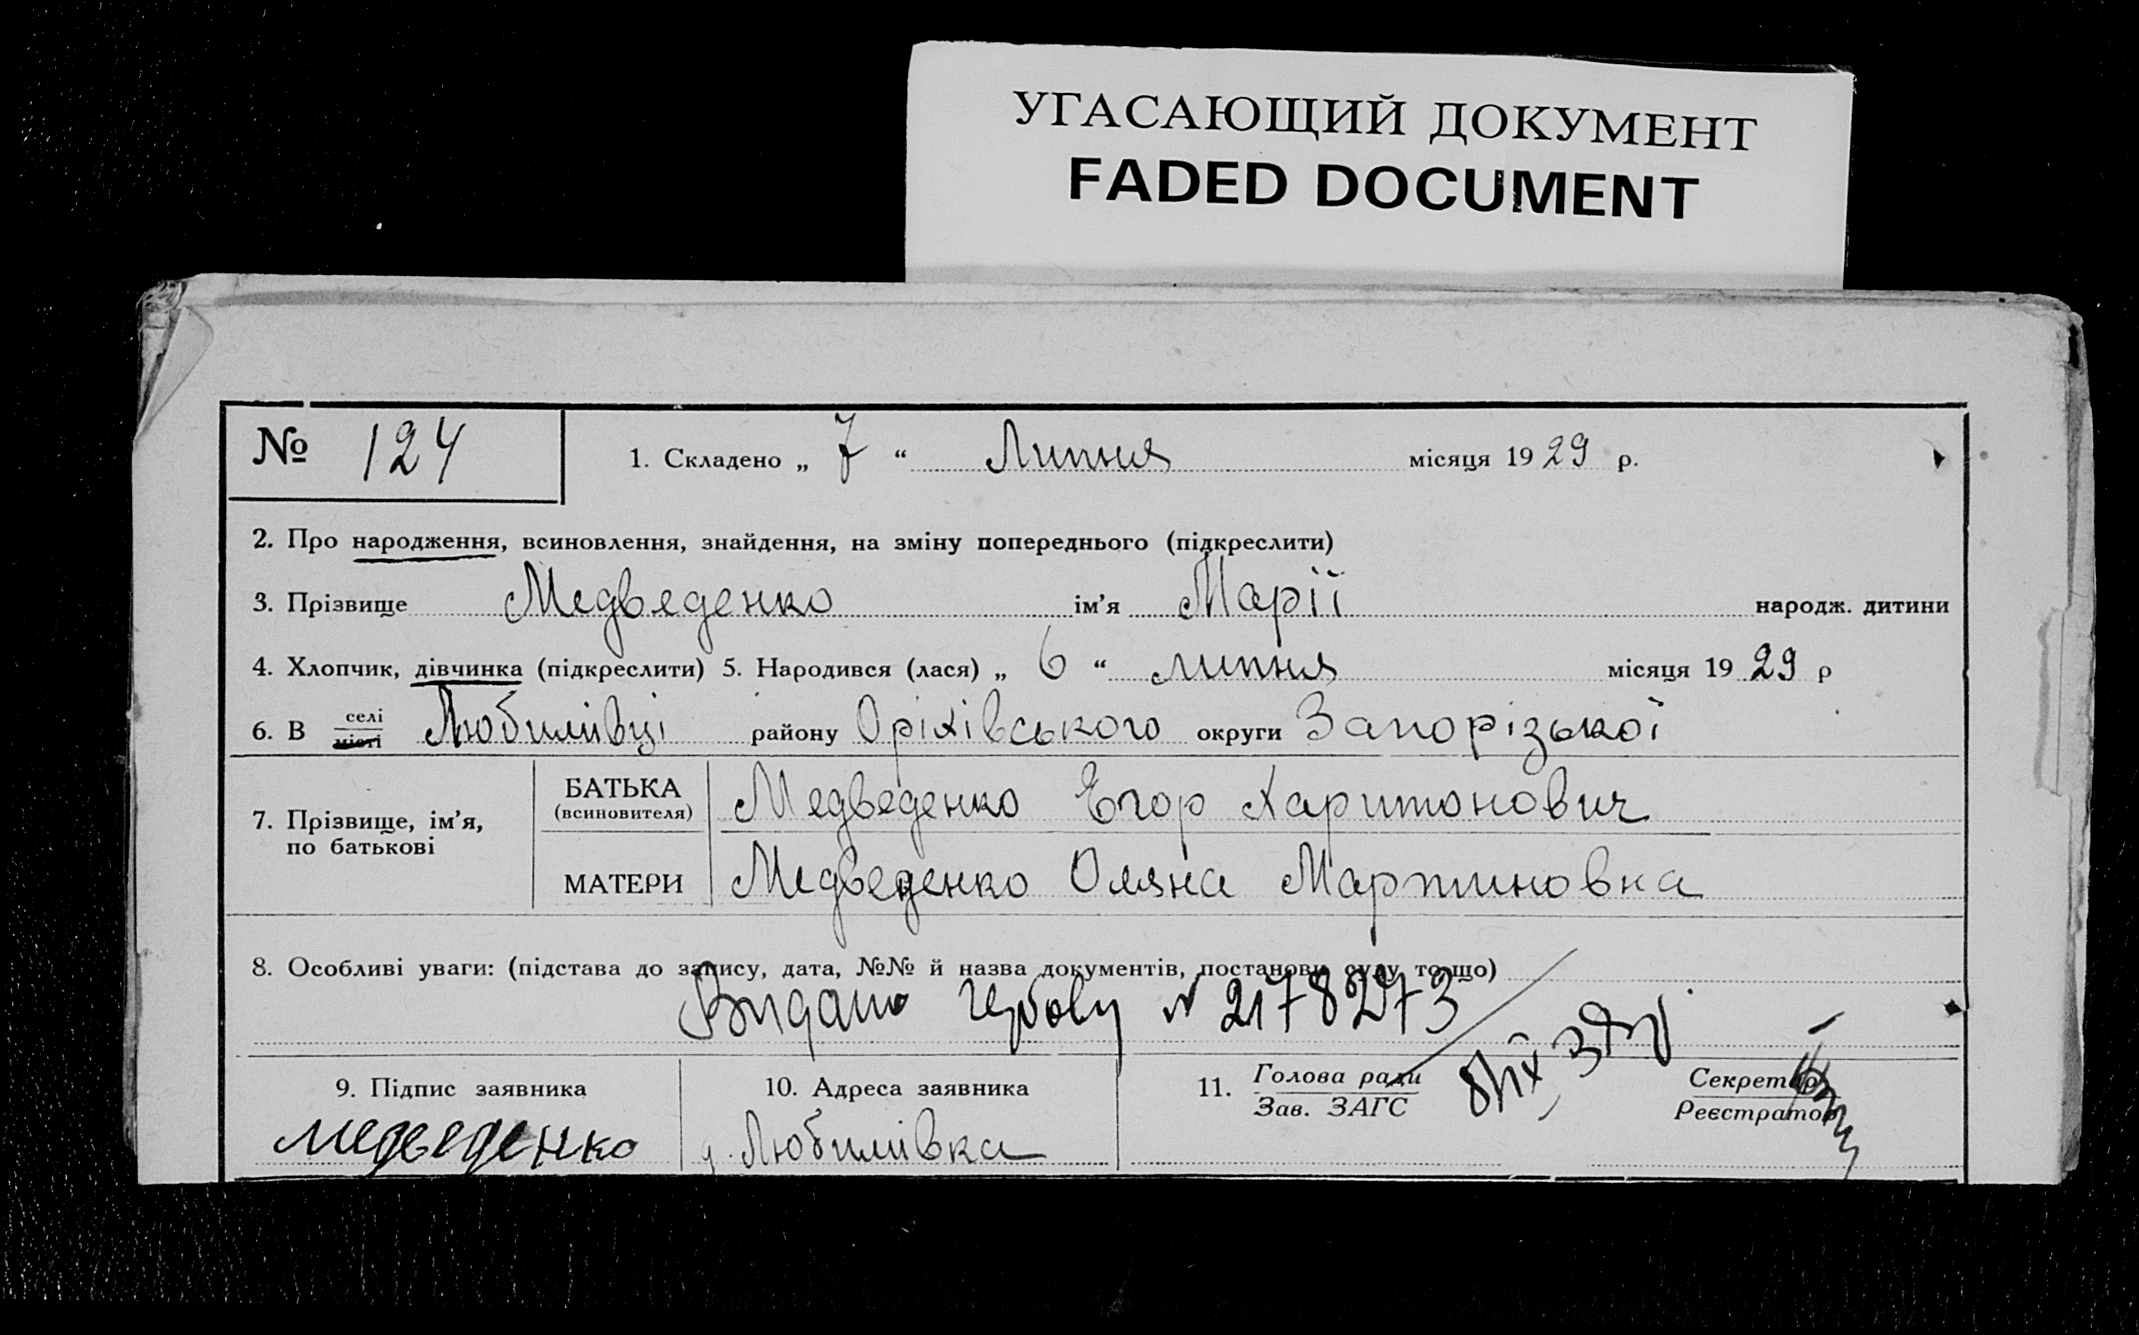 УГАСАЮЩИЙ ДОКУМЕНТ
FADED DOCUMENT
№ 124
1. Складено „ 7 “ Липня місяця 1929 р.
2. Про народження, всиновлення, знайдення, на зміну попереднього (підкреслити)
3. Прізвище Медведенко ім’я Марії народж. дитини
4. Хлопчик, дівчинка (підкреслити) 5. Народився (лася) „ 6 “ липня місяця 1929 р
6. В селі місті Любимівці району Оріхівського округи Запорізької
7. Прізвище, ім’я, по батькові
БАТЬКА (всиновителя) Медведенко Егор Харитонович
МАТЕРИ Медведенко Оляна Мартиновна
8. Особливі уваги: (підстава до запису, дата, №№ й назва документів, постанови суду то що)
Видано гербову № 2178273
9. Підпис заявника
медведенко
10. Адреса заявника
Любимівка
11. Голова ради
Зав. ЗАГС
8/IX 37
Секретар
Реєстратор